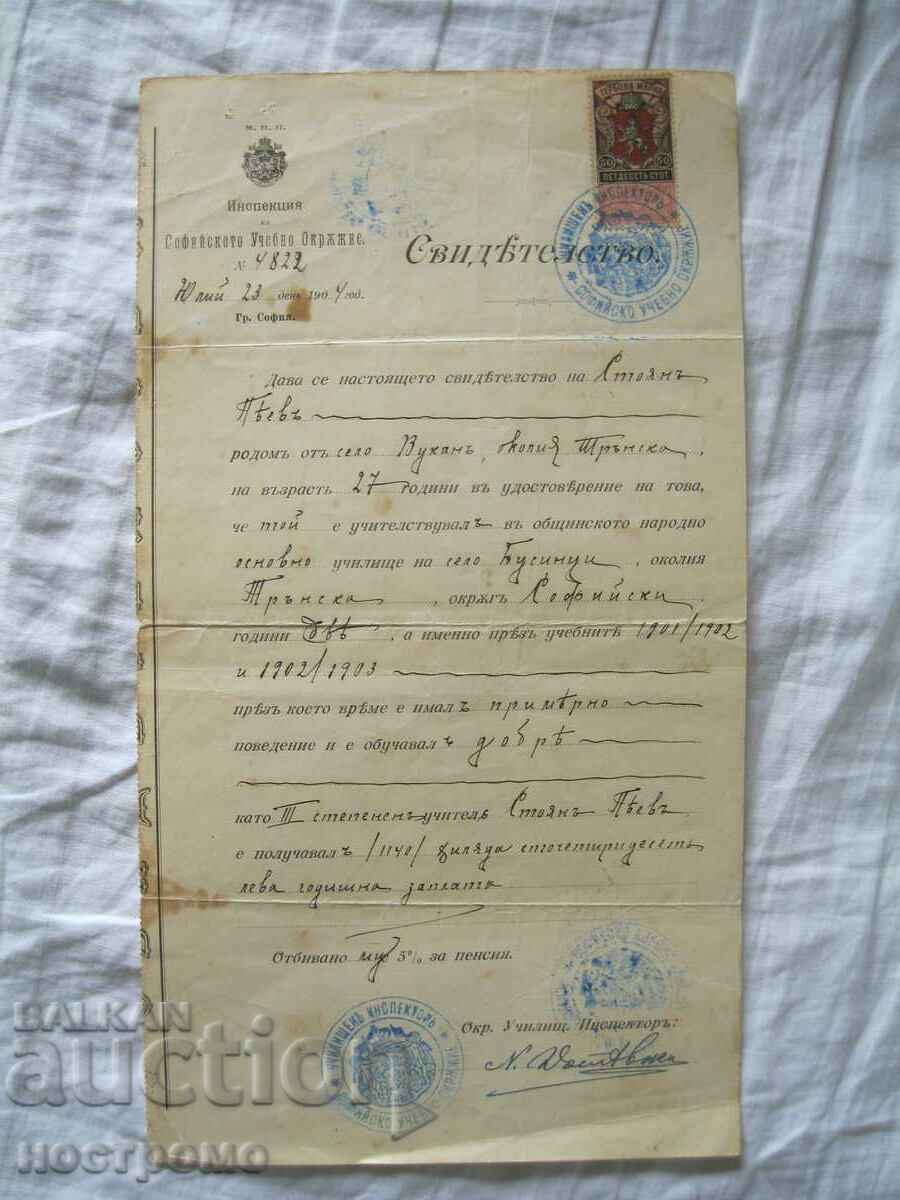 М. П. П.
Инспекция
на
Софийското Учебно Окрѫжие.
№ 4822
Юлий 23 день 1904 год.
Гр. София.
ГЕРБОВА МАРКА
50 50
ПЕТДЕСЕТЬ СТОТ.
УЧИЛИЩЕНЪ ИНСПЕКТОРЪ
СОФИЙСКО УЧЕБНО ОКРѪЖИЕ
Свидѣтелство.
Дава се настоящето свидѣтелство на Стоянъ
Пѣевъ
родомъ отъ село Вуканъ, околия Трънска,
на възрасть 27 години въ удостовѣрение на това,
че той е учителствувалъ въ общинското народно
основно училище на село Бусинци, околия
Трънска, окрѫгъ Софийски
години двѣ, а именно прѣзъ учебнитѣ 1901/1902
и 1902/1903
прѣзъ което врѣме е ималъ примѣрно
поведение и е обучавалъ добрѣ
като III степененъ учитель Стоянъ Пѣевъ
е получавалъ /1140/ хиляда сточетиридесеть
лева годишна заплата.
Отбивано му 5% за пенсия.
Окр. Училищ. Инспекторъ:
УЧИЛИЩЕНЪ ИНСПЕКТОРЪ
СОФИЙСКО УЧЕБНО ОКРѪЖИЕ
BALKAN
auction
ностромо